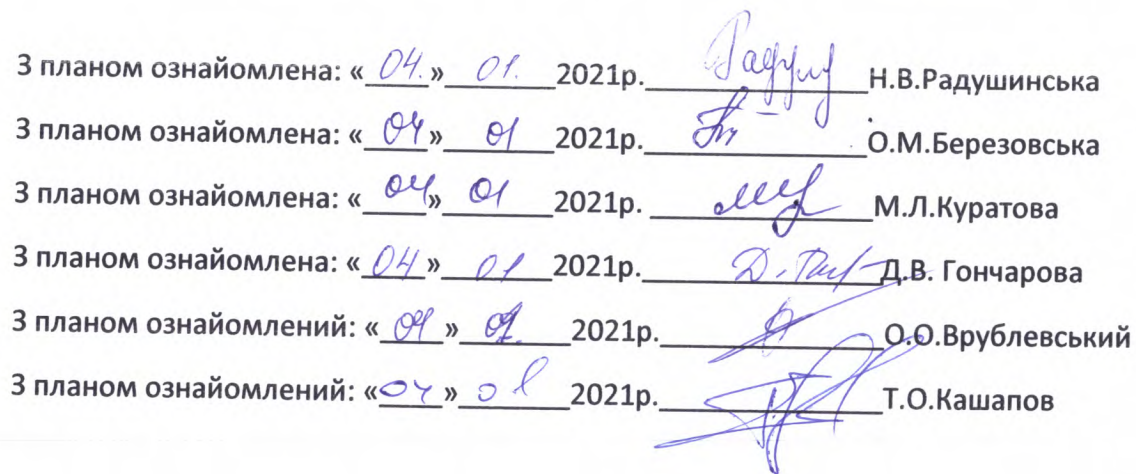 З планом ознайомлена: « 04. » 01. 2021р. Н.В.Радушинська
З планом ознайомлена: « 04 » 01 2021р. О.М.Березовська
З планом ознайомлена: « 04 » 01 2021р. М.Л.Куратова
З планом ознайомлена: « 04 » 01 2021р. Д.В. Гончарова
З планом ознайомлений: « 04 » 01 2021р. О.О.Врублевський
З планом ознайомлений: « 04 » 01 2021р. Т.О.Кашапов